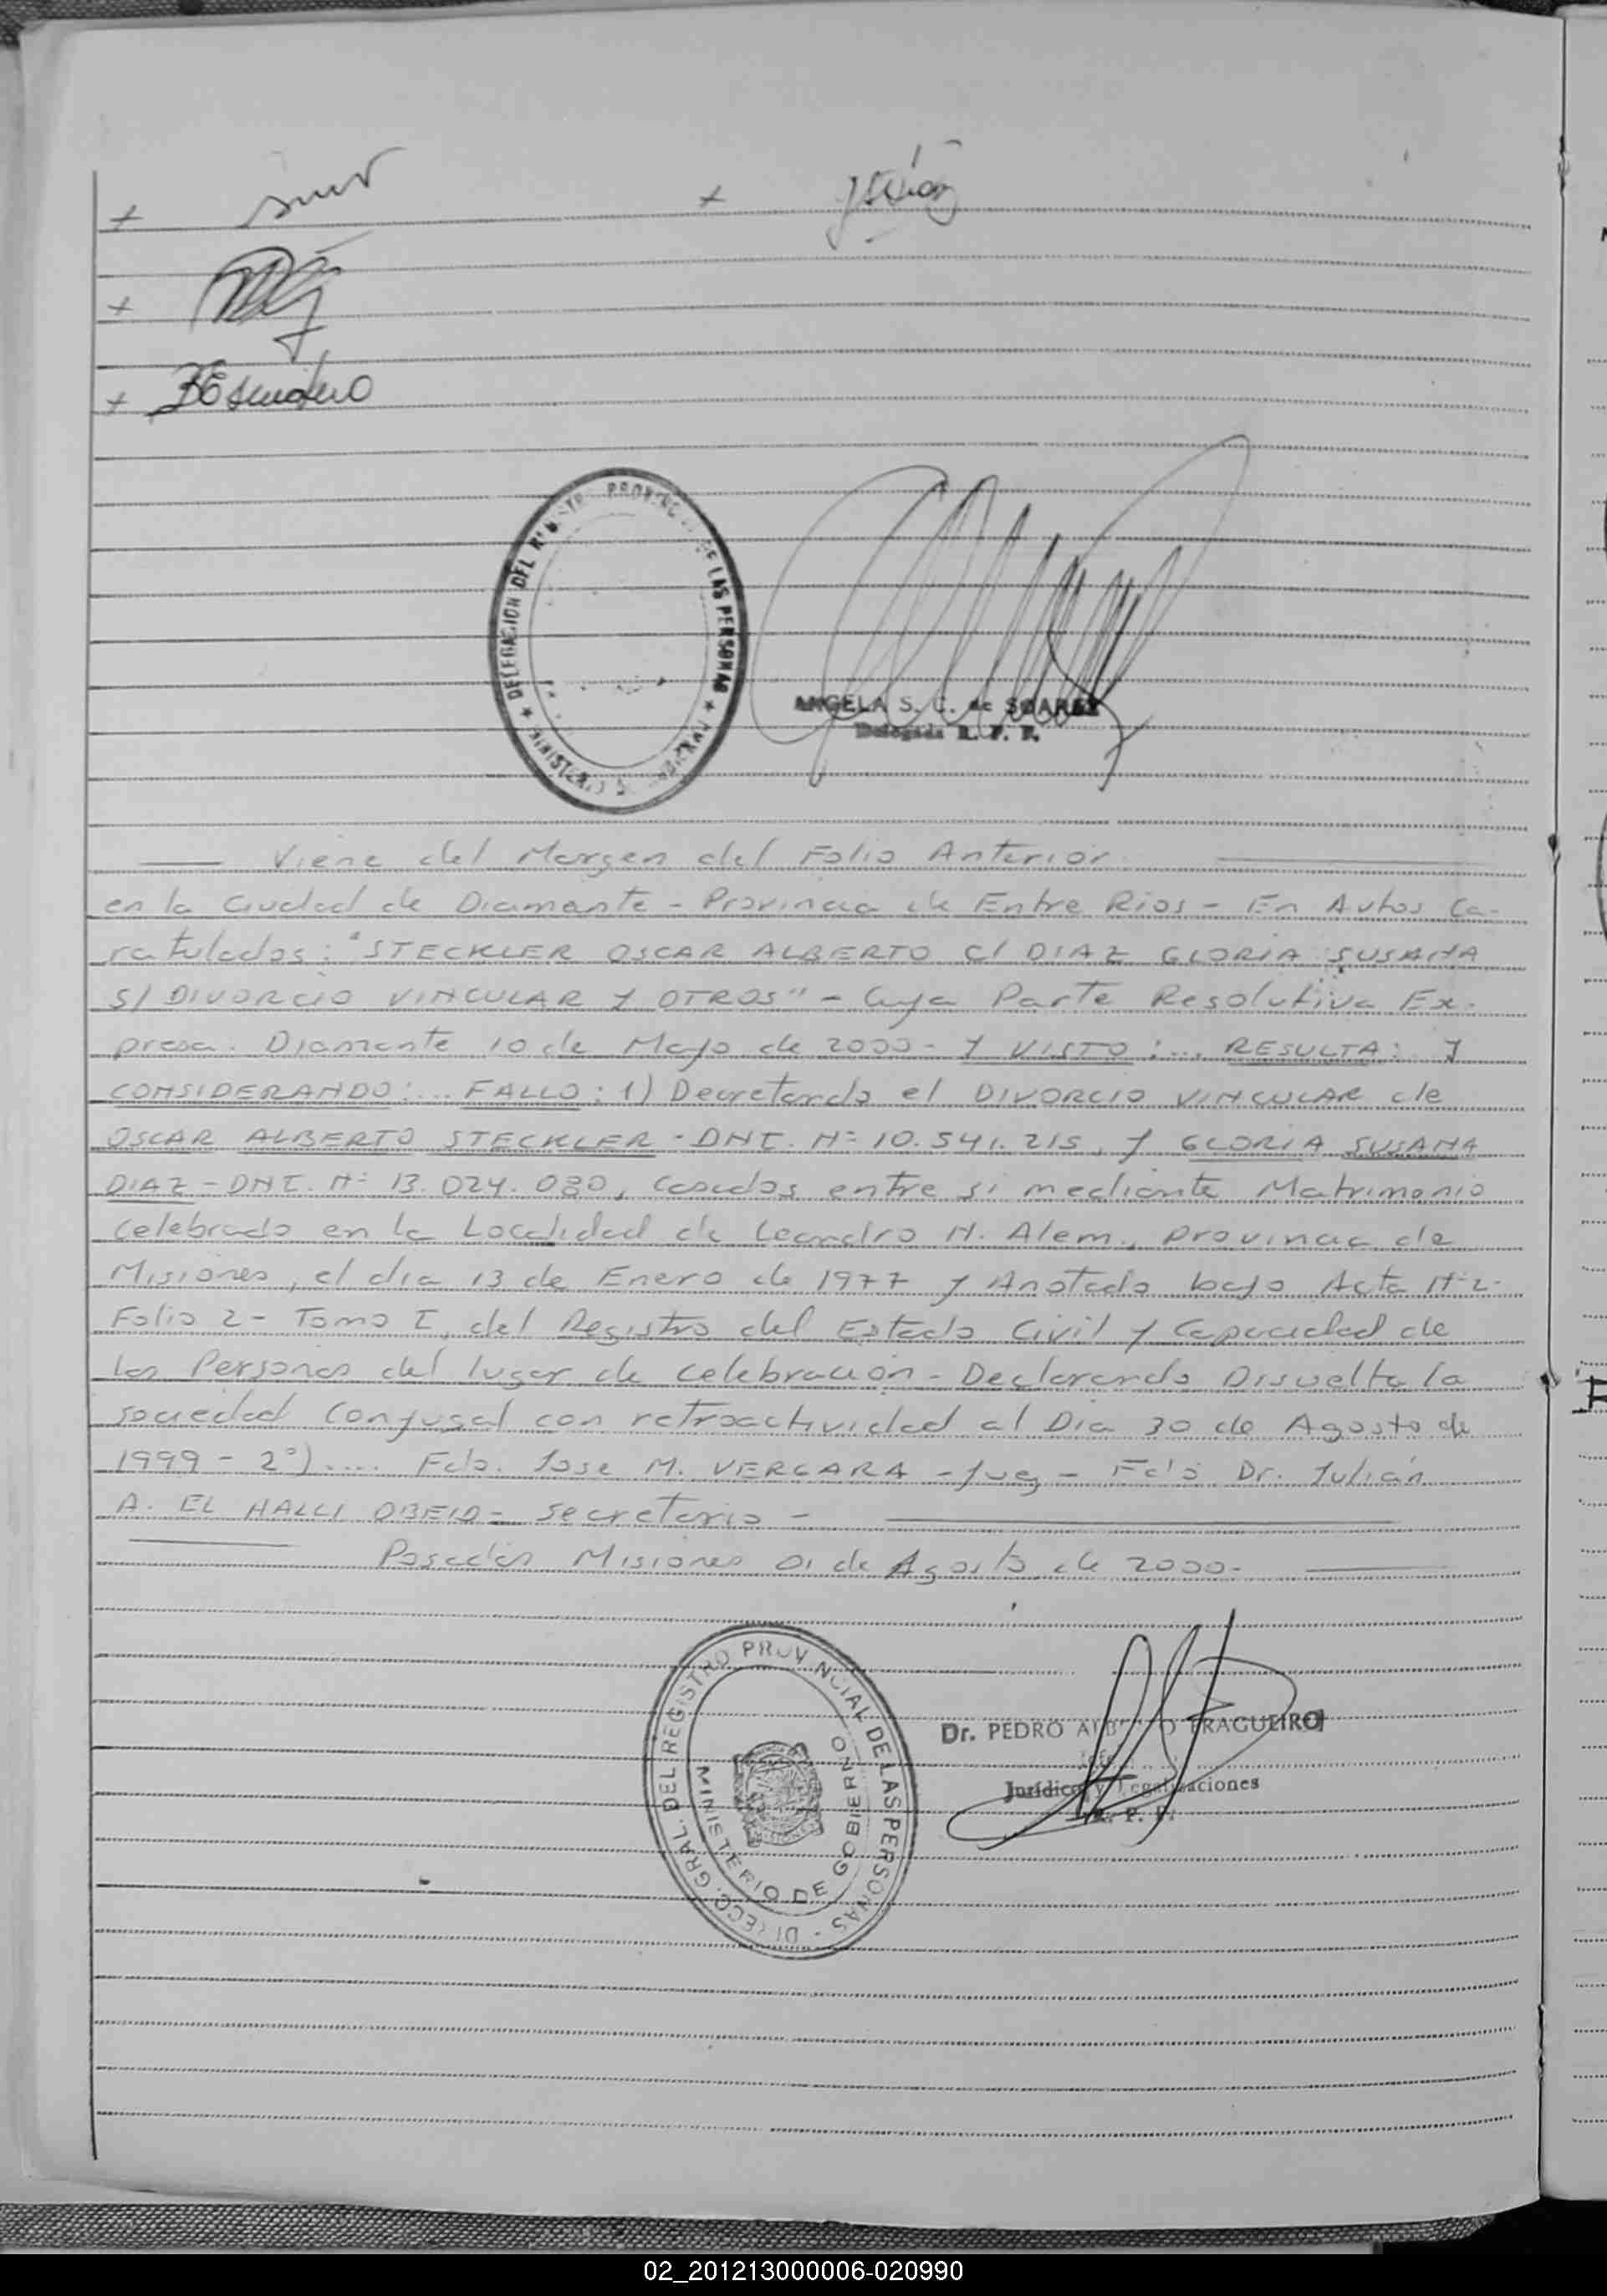 + +
+
+ BEscudero
DELEGACION DEL REGISTRO PROVINCIAL DE LAS PERSONAS ★ MINISTERIO
ANGELA S. C. de SOAREZ
Delegada R. P. P.
Viene del Margen del Folio Anterior
en la Ciudad de Diamante - Provincia de Entre Rios - En Autos Ca-
ratulados: "STECKLER OSCAR ALBERTO C/ DIAZ GLORIA SUSANA
S/ DIVORCIO VINCULAR Y OTROS" - Cuya Parte Resolutiva Ex-
presa. Diamante 10 de Mayo de 2000 - Y VISTO: ... RESULTA: Y
CONSIDERANDO: ... FALLO: 1) Decretando el DIVORCIO VINCULAR de
OSCAR ALBERTO STECKLER - DNI. Nº 10.541.215, y GLORIA SUSANA
DIAZ - DNI. Nº 13.024.080, casados entre si mediante Matrimonio
celebrado en la Localidad de Leandro N. Alem, provincia de
Misiones, el dia 13 de Enero de 1977 y Anotado bajo Acta Nº 2-
Folio 2 - Tomo I, del Registro del Estado Civil y Capacidad de
las Personas del lugar de celebración - Declarando Disuelta la
sociedad conyugal con retroactividad al Dia 30 de Agosto de
1999 - 2º) .... Fdo. Jose M. VERGARA - Juez - Fdo Dr. Julián
A. EL HALLI OBEID - secretario -
Posadas Misiones 01 de Agosto de 2000.
DIRECC. GRAL. DEL REGISTRO PROVINCIAL DE LAS PERSONAS -
MINISTERIO DE GOBIERNO
Dr. PEDRO ALBERTO FRAGUEIRO
Jefe
Jurídico y Legalizaciones
R. P. P.
02_201213000006-020990